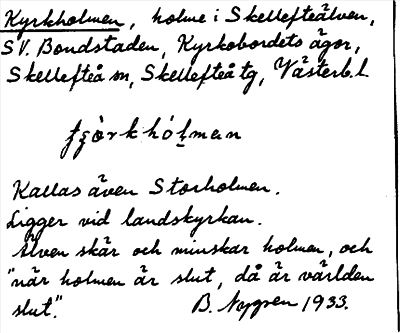 Kyrkholmen, holme i Skellefteälven,
SV. Bondstaden, Kyrkobordets ägor,
Skellefteå sn, Skellefteå tg, Västerb. l.
Kallas även Storholmen.
Ligger vid landskyrkan.
Älven skär och minskar holmen, och
"när holmen är slut, då är världen
slut." B. Nygren 1933.